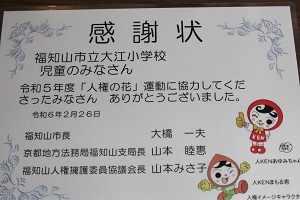 感謝状
福知山市立大江小学校
児童のみなさん
令和５年度「人権の花」運動に協力してくだ
さったみなさん　ありがとうございました。
令和６年２月２６日
福知山市長　大橋　一夫
京都地方法務局福知山支局長　山本　睦恵
福知山人権擁護委員協議会長　山本みさ子
人KENあゆみちゃん
人KENまもる君
人権イメージキャラクター